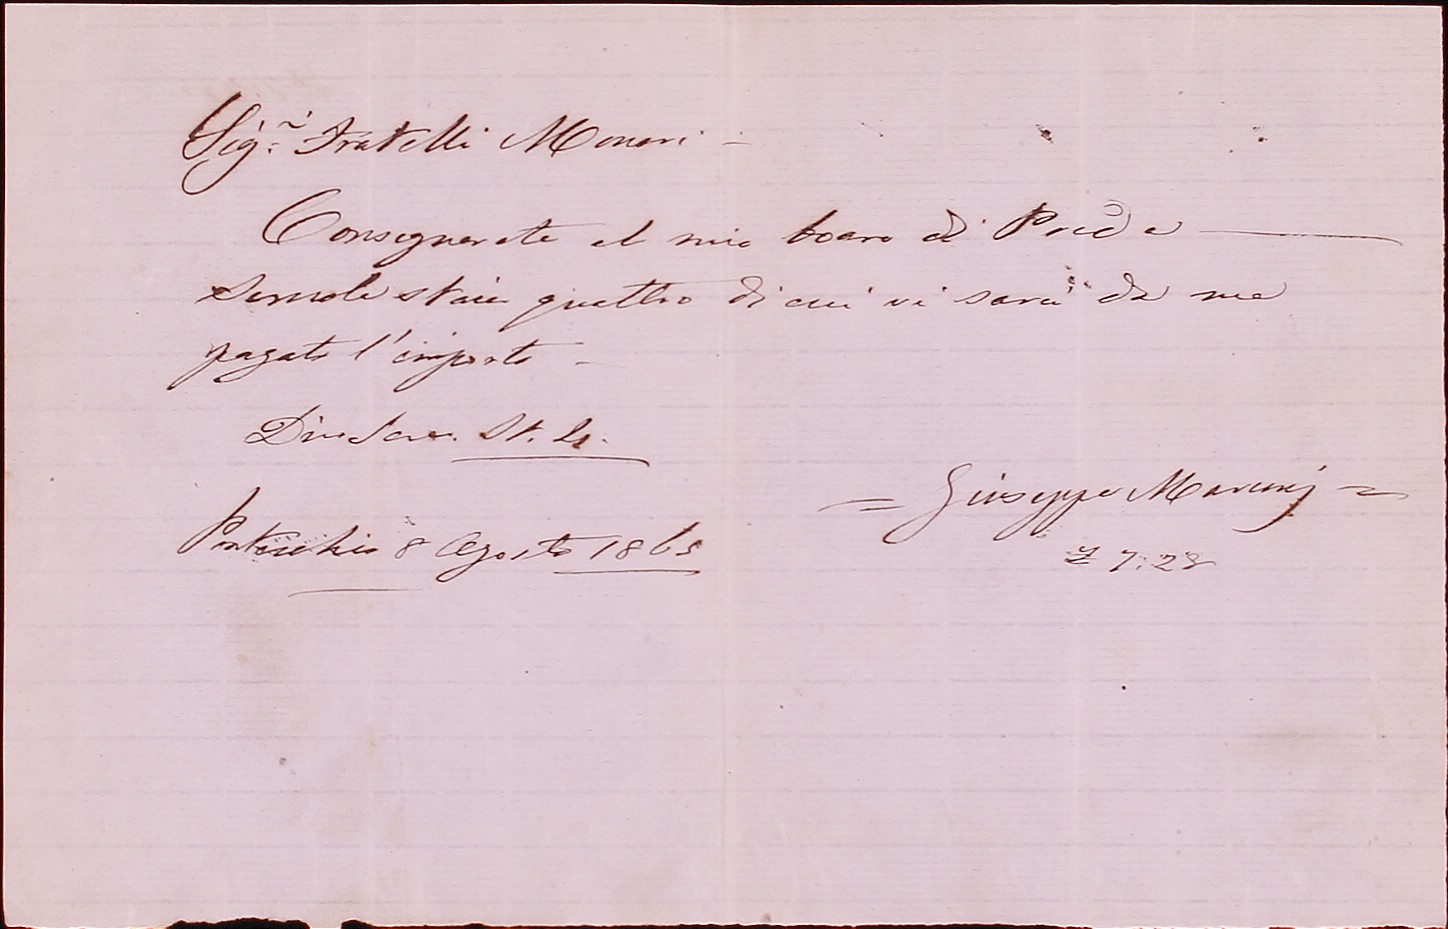 Sig.ri Fratelli Monari -
Consegnerete al mio boaro di Preda
Semole staia quattro di cui vi sarà da me
pagato l'importo -
St. 4.
Pontecchio 8 Agosto 1865
= Giuseppe Marconi =
£ 7:28